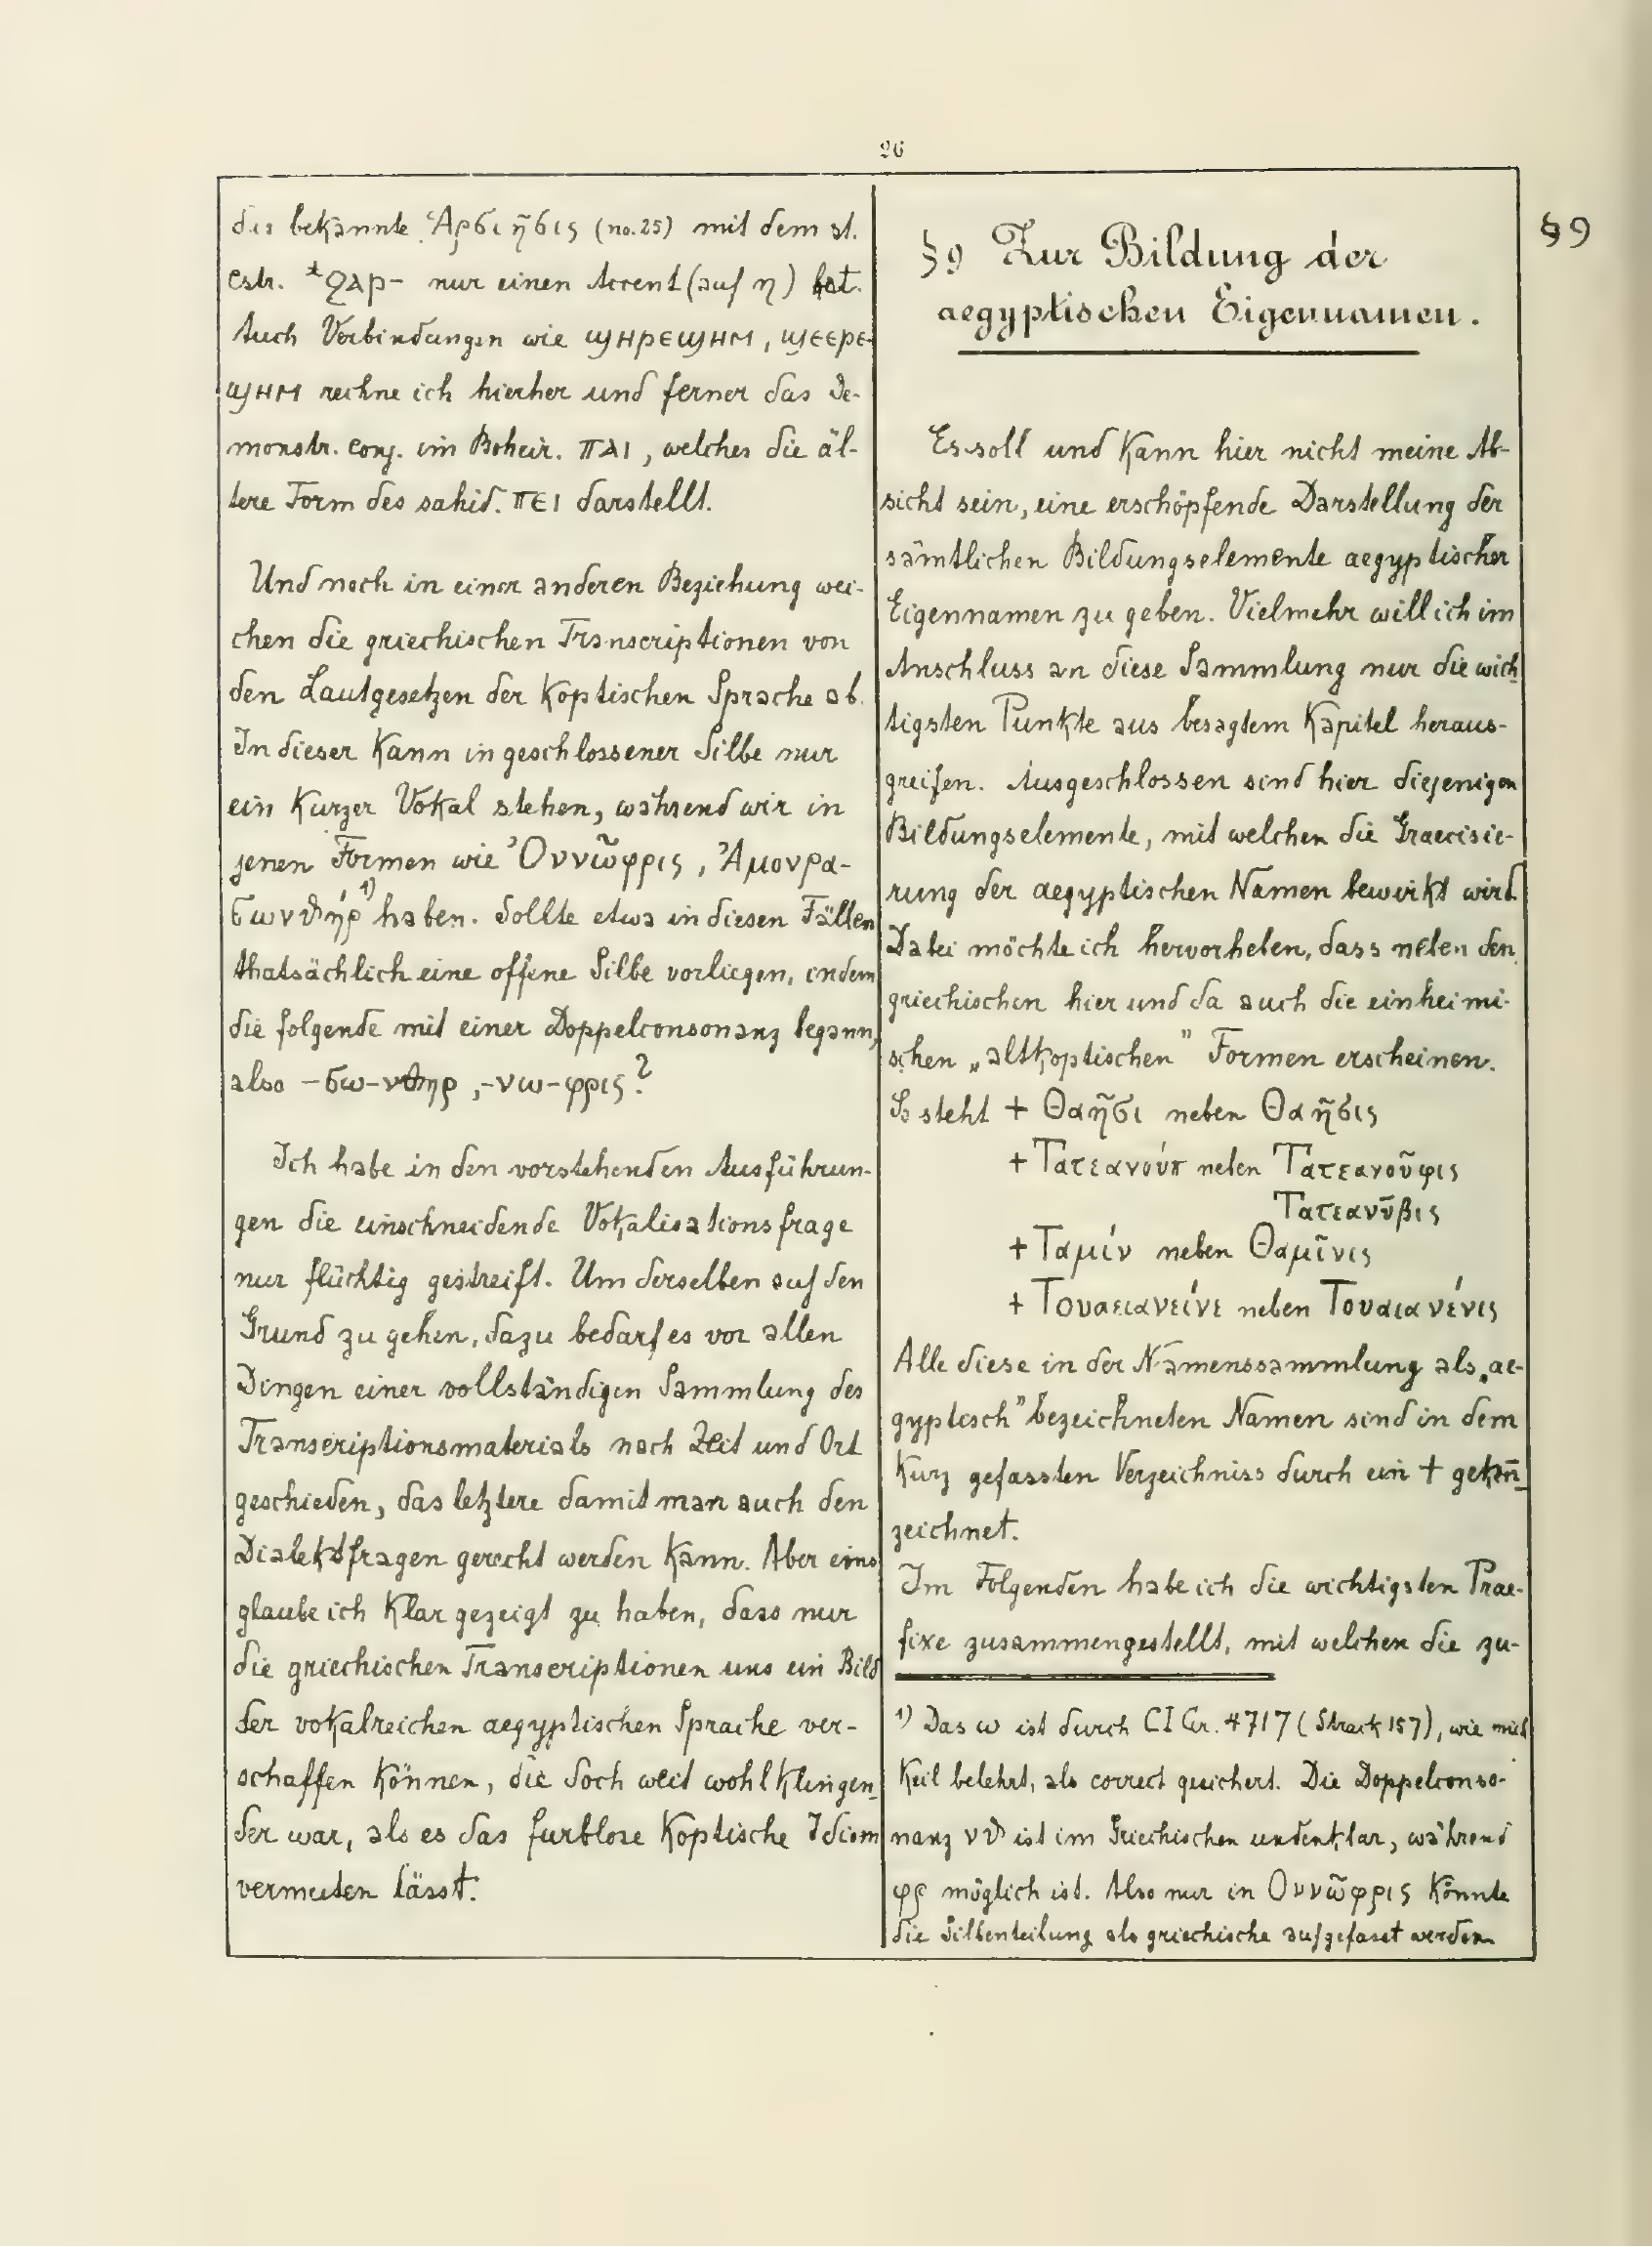 26
das bekannte Ἁρσιῆσις (no. 25) mit dem st.
cstr. *ϩⲁⲣ- nur einen Accent (auf η) hat.
Auch Verbindungen wie ϣⲏⲣⲉϣⲏⲙ, ϣⲉⲉⲣⲉ-
ϣⲏⲙ rechne ich hierher und ferner das De-
monstr. conj. im Boheir. ⲡⲁⲓ, welches die äl-
tere Form des sahid. ⲡⲉⲓ darstellt.
Und noch in einer anderen Beziehung wei-
chen die griechischen Transcriptionen von
den Lautgesetzen der koptischen Sprache ab.
In dieser kann in geschlossener Silbe nur
ein kurzer Vokal stehen, während wir in
jenen Formen wie Ὀννῶφρις, Ἀμονρα-
σωνθήρ ¹) haben. Sollte etwa in diesen Fällen
thatsächlich eine offene Silbe vorliegen, indem
die folgende mit einer Doppelconsonanz begann,
also -σω-νθηρ, -νω-φρις?
Ich habe in den vorstehenden Ausführun-
gen die einschneidende Vokalisationsfrage
nur flüchtig gestreift. Um derselben auf den
Grund zu gehen, dazu bedarf es vor allen
Dingen einer vollständigen Sammlung des
Transcriptionsmaterials nach Zeit und Ort
geschieden, das letztere damit man auch den
Dialektfragen gerecht werden kann. Aber eins
glaube ich klar gezeigt zu haben, dass nur
die griechischen Transcriptionen uns ein Bild
der vokalreichen aegyptischen Sprache ver-
schaffen können, die doch weit wohlklingen-
der war, als es das farblose koptische Idiom
vermuten lässt.
§ 9
§ 9 Zur Bildung der
aegyptischen Eigennamen.
Es soll und kann hier nicht meine Ab-
sicht sein, eine erschöpfende Darstellung der
sämtlichen Bildungselemente aegyptischer
Eigennamen zu geben. Vielmehr will ich im
Anschluss an diese Sammlung nur die wich-
tigsten Punkte aus besagtem Kapitel heraus-
greifen. Ausgeschlossen sind hier diejenigen
Bildungselemente, mit welchen die Graecisie-
rung der aegyptischen Namen bewirkt wird.
Dabei möchte ich hervorheben, dass neben den
griechischen hier und da auch die einheimi-
schen „altkoptischen" Formen erscheinen.
So steht + Θαῆσι neben Θαῆσις
+ Τατεανούπ neben Τατεανοῦφις
Τατεανῦβις
+ Ταμίν neben Θαμῖνις
+ Τουαειανείνε neben Τουαιανένις
Alle diese in der Namenssammlung als „ae-
gyptisch" bezeichneten Namen sind in dem
kurz gefassten Verzeichniss durch ein + gekeñ-
zeichnet.
Im Folgenden habe ich die wichtigsten Prae-
fixe zusammengestellt, mit welchen die zu-
¹) Das ω ist durch CIGr. 4717 (Strack 157), wie mich
Keil belehrt, als correct gesichert. Die Doppelconso-
nanz νθ ist im Griechischen undenkbar, während
φρ möglich ist. Also nur in Ὀννῶφρις könnte
die Silbenteilung als griechische aufgefasst werden